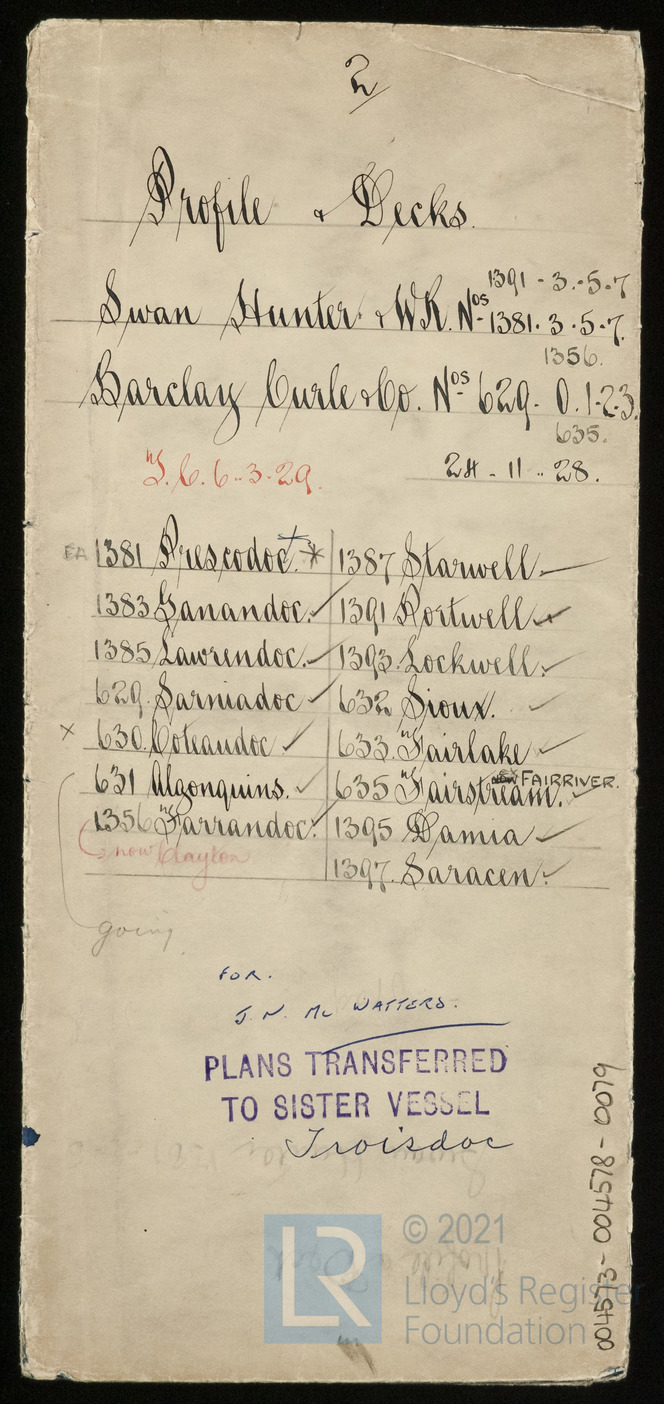 2
Profile & Decks.
1391 - 3. - 5. - 7
Swan Hunter & WR. Nos 1381. 3. 5. 7.
1356.
Barclay Curle & Co. Nos 629. 0. 1. 2. 3.
635.
T.C. 6-3-29.
24 - 11 - 28.
EA 1381 Prescodoc. *
1383 Ganandoc. ✓
1385 Lawrendoc. ✓
629. Sarniadoc ✓
x 630. Coteaudoc ✓
631 Algonquins. ✓
1356 "Farrandoc. ✓
now Clayton
going
1387 Starwell —
1391 Portwell ✓
1393. Lockwell. ✓
632 Sioux. ✓
633. "Fairlake ✓
FAIRRIVER.
635 "Fairstream. ✓
1395 Damia ✓
1397. Saracen. ✓
FOR.
J. N. Mc WATTERS.
PLANS TRANSFERRED
TO SISTER VESSEL
Troisdoc
004573 - 004578 - 0079
LR
© 2021
Lloyd's Register
Foundation